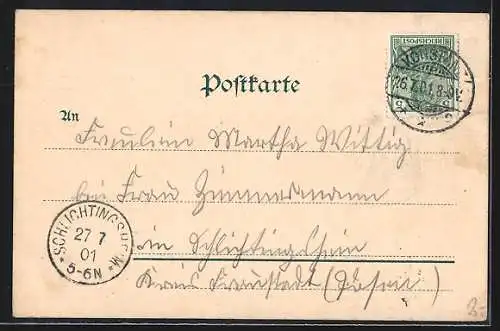 REICHSPOST
KONSTANZ
26.7.01.8-9V.
Postkarte
An
Fräulein Martha Wittig
bei Frau Zimmermann
in Schlichtingsheim
Kreis Fraustadt (Posen)
SCHLICHTINGSHEIM
27 7
01
5-6N